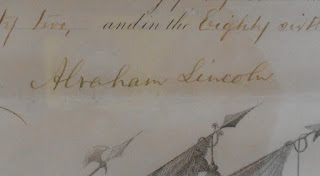 ty two, and in the Eighty sixth
Abraham Lincoln